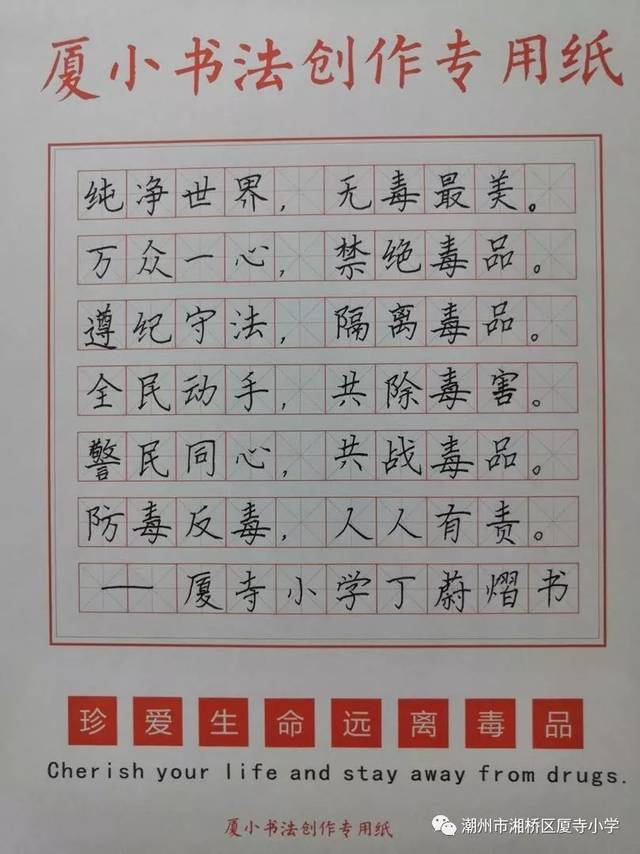 厦小书法创作专用纸
纯净世界，无毒最美。
万众一心，禁绝毒品。
遵纪守法，隔离毒品。
全民动手，共除毒害。
警民同心，共战毒品。
防毒反毒，人人有责。
——厦寺小学丁蔚熠书
珍爱生命远离毒品
Cherish your life and stay away from drugs.
厦小书法创作专用纸
潮州市湘桥区厦寺小学